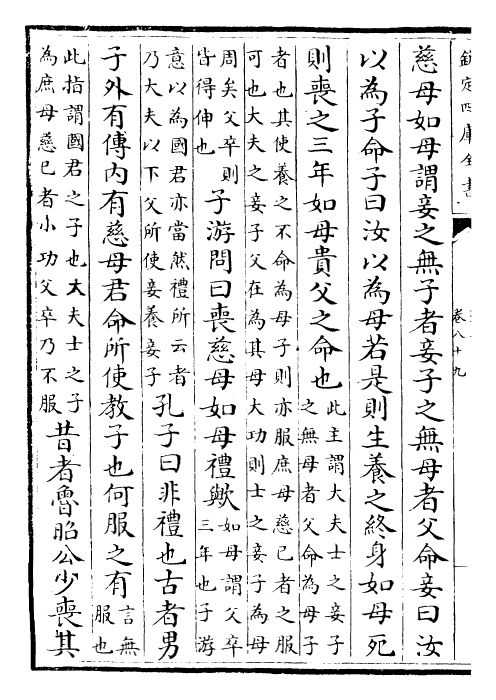 欽定四庫全書
卷八十九
慈母如母謂妾之無子者妾子之無母者父命妾曰汝
以為子命子曰汝以為母若是則生養之終身如母死
則喪之三年如母貴父之命也此主謂大夫之妾子
之無母者父命為母子
者也其使養之不命為母子則亦服庶母慈已者之服
可也大夫之妾子父在為其母大功則士之妾子為母
周矣父卒則
皆得伸也子游問曰喪慈母如母禮歟如母謂父卒
三年也子游
意以為國君亦當然禮所云者
乃大夫以下父所使妾養妾子孔子曰非禮也古者男
子外有傳内有慈母君命所使教子也何服之有言無
服也
此指謂國君之子也大夫士之子
為庶母慈已者小功父卒乃不服昔者魯昭公少喪其